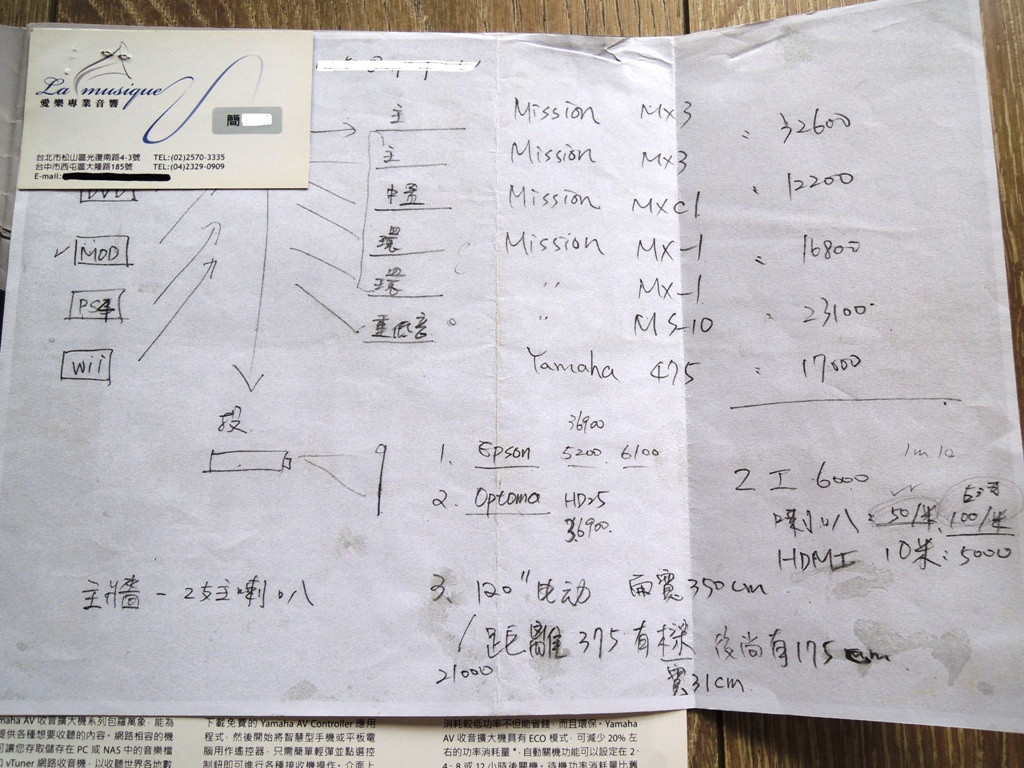 La musique
愛樂專業音響
簡
台北市松山區光復南路4-3號 TEL:(02)2570-3335
台中市西屯區大隆路185號 TEL:(04)2329-0909
E-mail:
MOD
PS4
Wii
主 Mission MX3 : 32600
主 Mission MX3
中置 Mission MXC1 : 12200
環 Mission MX-1 : 16800
環 〃 MX-1
重低音 〃 MS-10 : 23100
Yamaha 475 : 17000
投
36900
1. Epson 5200 6100
2. Optoma HD25
36900
2工 6000
喇叭: 50/米 100/米
HDMI 10米: 5000
主牆 - 2支主喇叭
3. 120" 电动 面寬350cm
距離375有樑 後尚有175cm
21000
寬31cm
Yamaha AV 收音擴大機系列包羅萬象，能為
提供各種想要收聽的內容。網路相容的機
可讓您存取儲存在 PC 或 NAS 中的音樂檔
vTuner 網路收音機，以收聽世界各地數
下載免費的 Yamaha AV Controller 應用
程式，然後開始將智慧型手機或平板電
腦用作遙控器，只需簡單輕彈並點選控
制鈕即可進行各種接收機操作。介面上
消耗較低功率不但能省錢，而且環保。Yamaha
AV 收音擴大機具有 ECO 模式，可減少 20% 左
右的功率消耗量*。自動關機功能可以設定在 2、
4、8 或 12 小時後關機。待機功率消耗量比舊